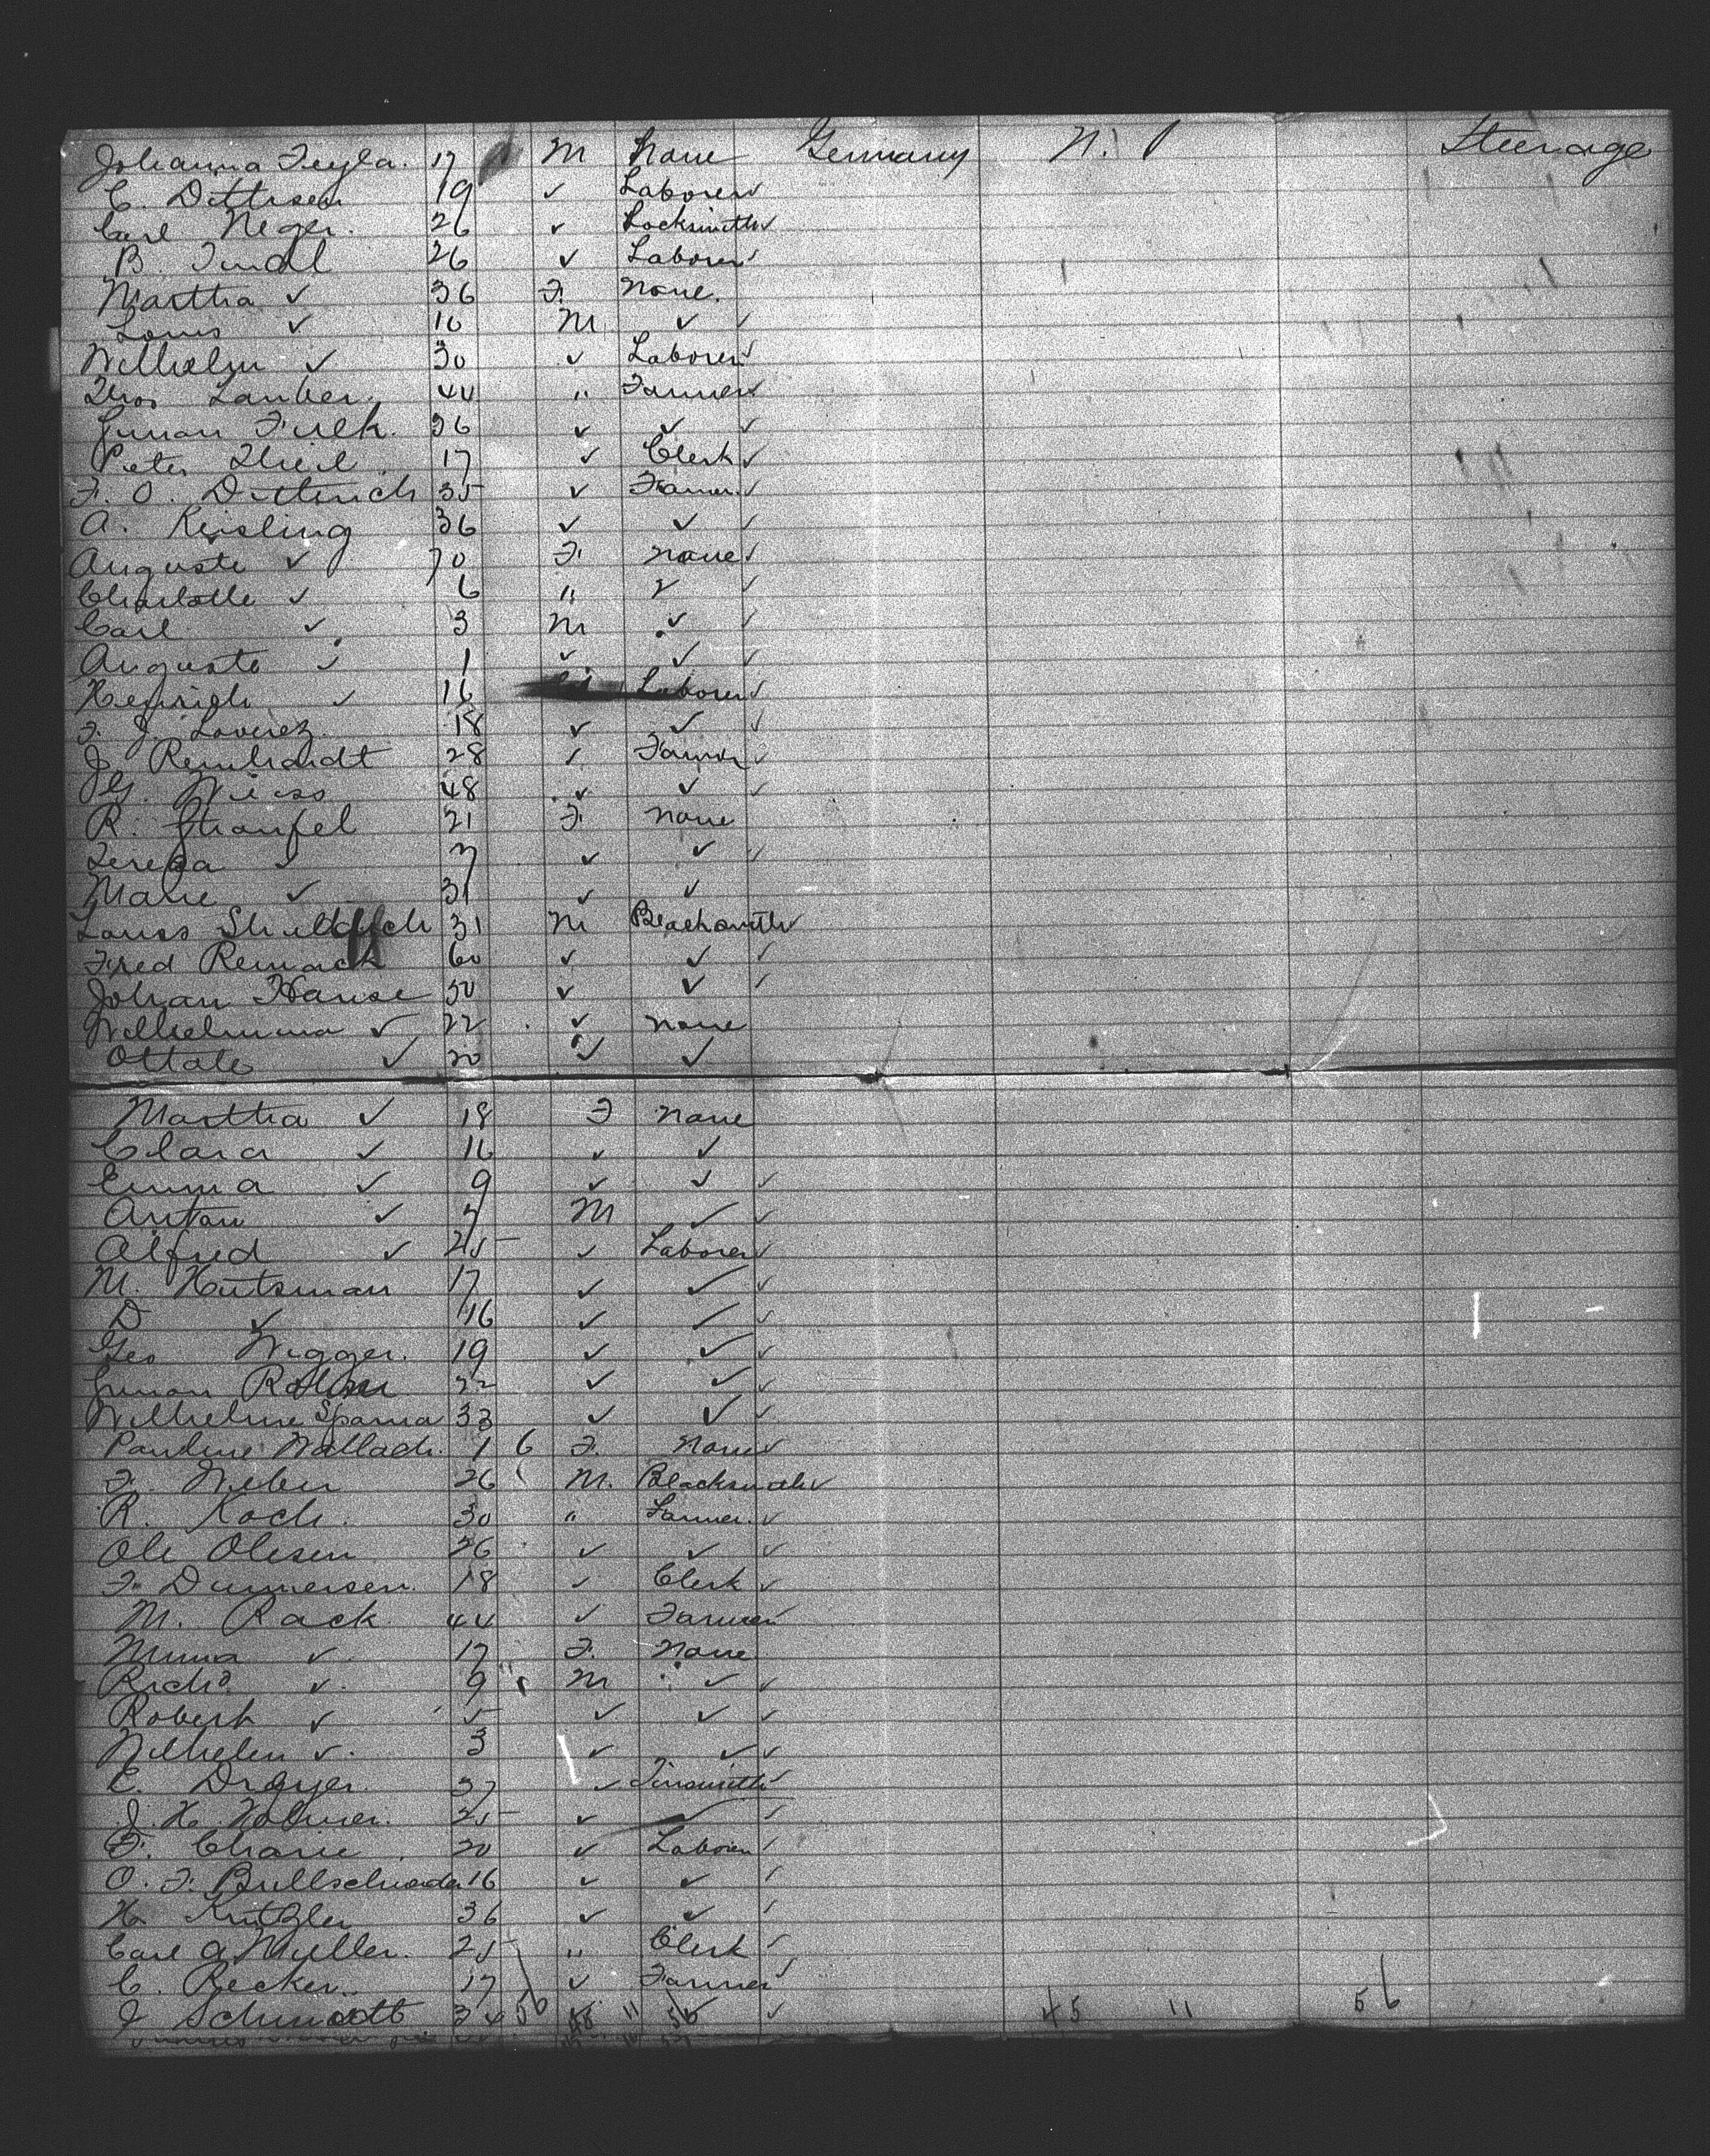 Johanna Feyla. 17 M None Germany N. Y Steerage
C. Dittrsen 19 ✓ Laborer ✓
Carl Neger. 26 ✓ Locksmith ✓
B. Tindl 26 ✓ Laborer ✓
Martha ✓ 36 F. None.
Louis ✓ 16 M ✓ ✓
Wilhelm ✓ 30 ✓ Laborer ✓
Thos Lauber. 44 " Farmer ✓
36 ✓ ✓ ✓
Peter Theil. 17 ✓ Clerk ✓
F. O. Dittrich 35 ✓ Farmer ✓
A. Keisling 36 ✓ ✓ ✓
Auguste ✓ F. None ✓
Charlotte ✓ 6 " ✓ ✓
Carl ✓ 3 M ✓ ✓
Auguste ✓ 1 ✓ ✓ ✓
Heinrich ✓ 16 Laborer ✓
F. J. Loverez. 18 ✓ ✓ ✓
J. Reinhardt 28 ✓ Farmer ✓
Weiss 48 ✓ ✓ ✓
R. 21 F. None
Teresa ✓ 7 ✓ ✓ ✓
Marie ✓ 31 ✓ ✓
Louis 31 M Blacksmith ✓
Fred Remack 60 ✓ ✓ ✓
Johan Hause 50 ✓ ✓ ✓
Wilhelmina ✓ 22 ✓ None
Ottale ✓ 20 ✓ ✓
Martha ✓ 18 F None
Clara ✓ 16 ✓ ✓
Emma ✓ 9 ✓ ✓ ✓
Anton ✓ 7 M ✓ ✓
Alfred ✓ 25 ✓ Laborer ✓
M. Hutsman 17 ✓ ✓ ✓
D ✓ 16 ✓ ✓ ✓
Geo Wigger. 19 ✓ ✓ ✓
22 ✓ ✓ ✓
Wilhelme Spama 33 ✓ ✓ ✓
Pauline Wallach. 1 6 F. None ✓
F. Weber 26 M. Blacksmith ✓
R. Koch. 30 " Farmer. ✓
Ole Olesen 26 ✓ ✓ ✓
F. Dummersen. 18 ✓ Clerk ✓
M. Rack. 44 ✓ Farmer ✓
Minna ✓ 17 F. None
Richd ✓ 9 M ✓ ✓
Robert ✓ 5 ✓ ✓ ✓
Wilhelm ✓ 3 ✓ ✓ ✓
E. Drayer. 37 ✓ Tinsmith ✓
J. H. 25 ✓ ✓ ✓
F. Charie. 20 ✓ Laborer ✓
O. F. Bullschroder 16 ✓ ✓ ✓
H. Kutzler 36 ✓ ✓ ✓
Carl A Muller. 25 " Clerk ✓
C. Recker. 17 ✓ Farmer ✓
J Schmidt 34 56 48 11 56 ✓ 45 11 56